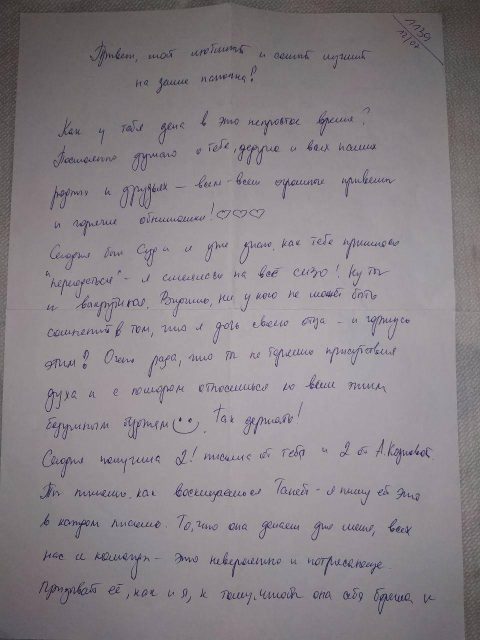 1139
12/07
Привет, мой любимый и самый лучший
на земле папочка!
Как у тебя дела в это непростое время?
Постоянно думаю о тебе, дедуле и всех наших
родных и друзьях – всем-всем огромные приветы
и горячие обнимашки! ♡♡♡
Сегодня был суд и я уже знаю, как тебе пришлось
"переодеться" – я смеялась на всё сизо! Ну ты
и выкрутился. Видишь, ни у кого не может быть
сомнений в том, что я дочь своего отца – и горжусь
этим! Очень рада, что ты не теряешь присутствия
духа и с юмором относишься ко всем этим
безумным Так держать!
Сегодня получила 2! письма от тебя и 2 от А.
Ты пишешь как восхищаешься Таней – я пишу ей это
в каждом письме. То, что она делает для меня, всех
нас и команды – это невероятно и потрясающе.
Призывай её, как и я, к тому, чтобы она себя берегла и